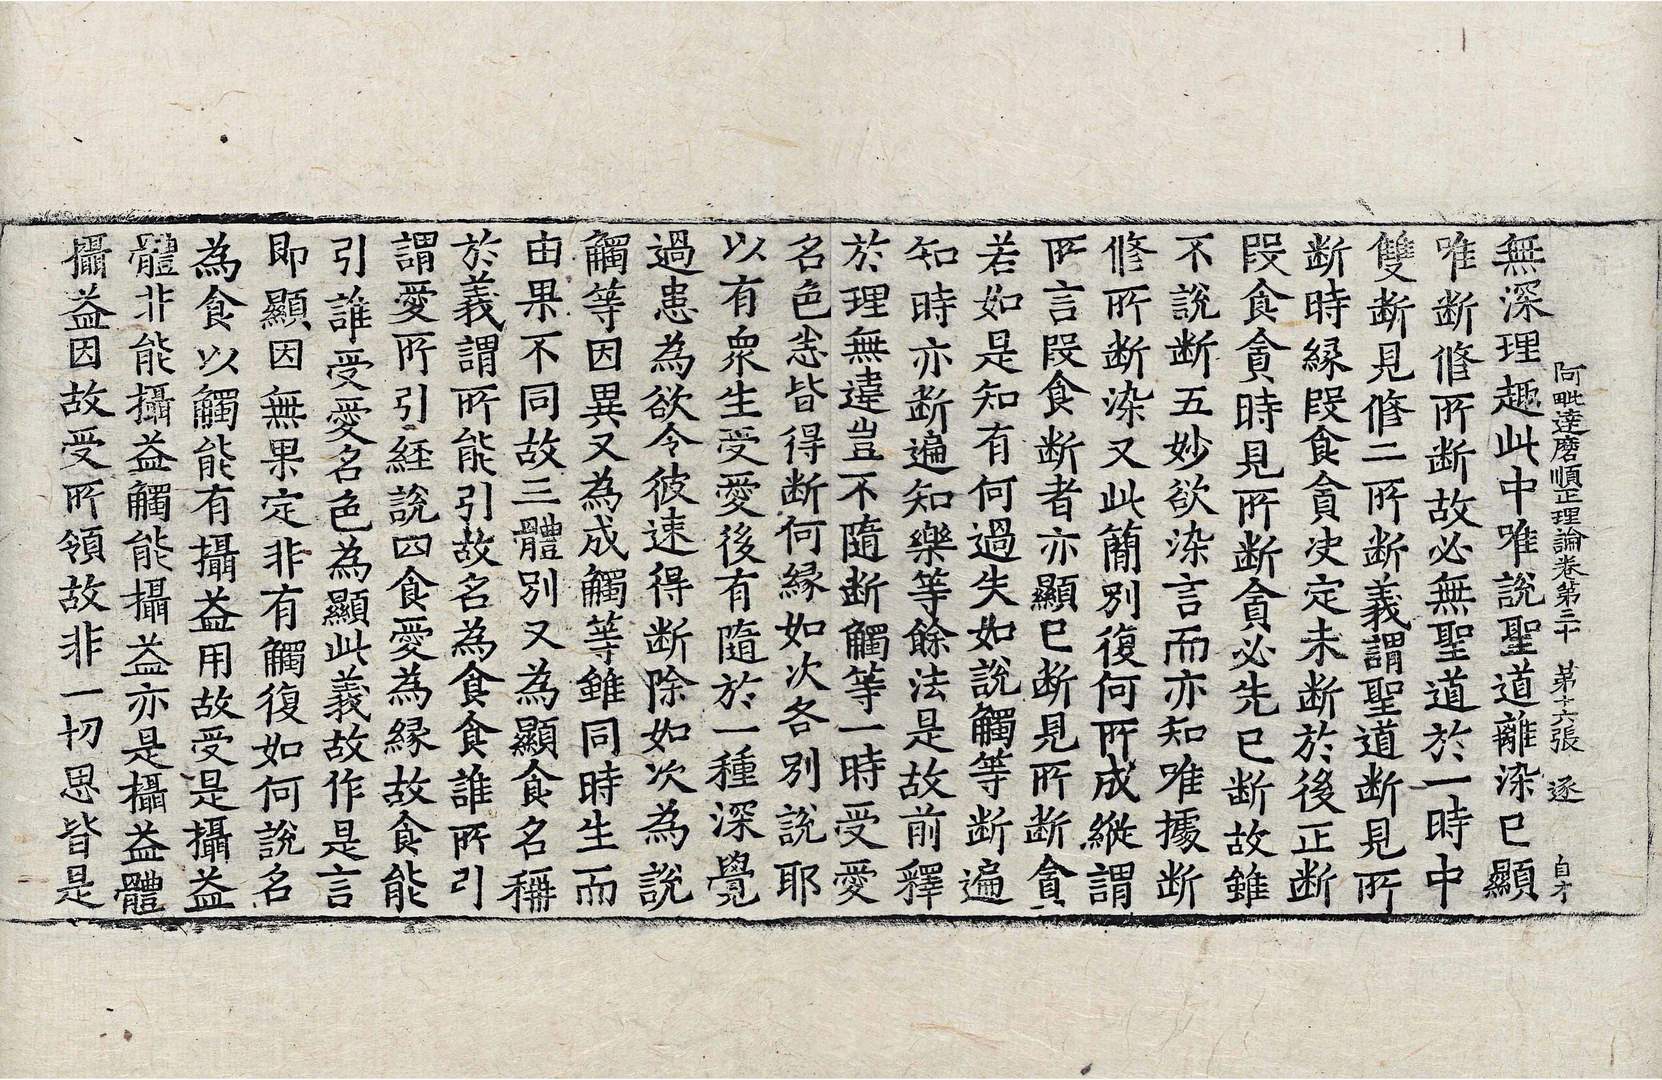 阿毗達磨順正理論卷第三十 第十六張 逐 自才
無深理趣此中唯說聖道離染已顯
唯断修所断故必無聖道於一時中
雙断見修二所断義謂聖道断見所
断時緣段食貪決定未断於後正断
段食貪時見所断貪必先已断故雖
不說断五妙欲染言而亦知唯據断
修所断染又此簡別復何所成縱謂
所言段食断者亦顯已断見所断貪
若如是知有何過失如說觸等断遍
知時亦断遍知樂等餘法是故前釋
於理無違豈不隨断觸等一時受愛
名色忩皆得断何緣如次各別說耶
以有衆生受愛後有隨於一種深覺
過患為欲令彼速得断除如次為說
觸等因異又為成觸等雖同時生而
由果不同故三體別又為顯食名稱
於義謂所能引故名為食食誰所引
謂愛所引經說四食愛為緣故食能
引誰受愛名色為顯此義故作是言
即顯因無果定非有觸復如何說名
為食以觸能有攝益用故受是攝益
體非能攝益觸能攝益亦是攝益體
攝益因故受所領故非一切思皆是